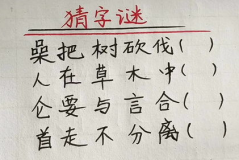 猜字谜
喿把树砍伐（ ）
人在草木中（ ）
仑要与言合（ ）
首走不分离（ ）